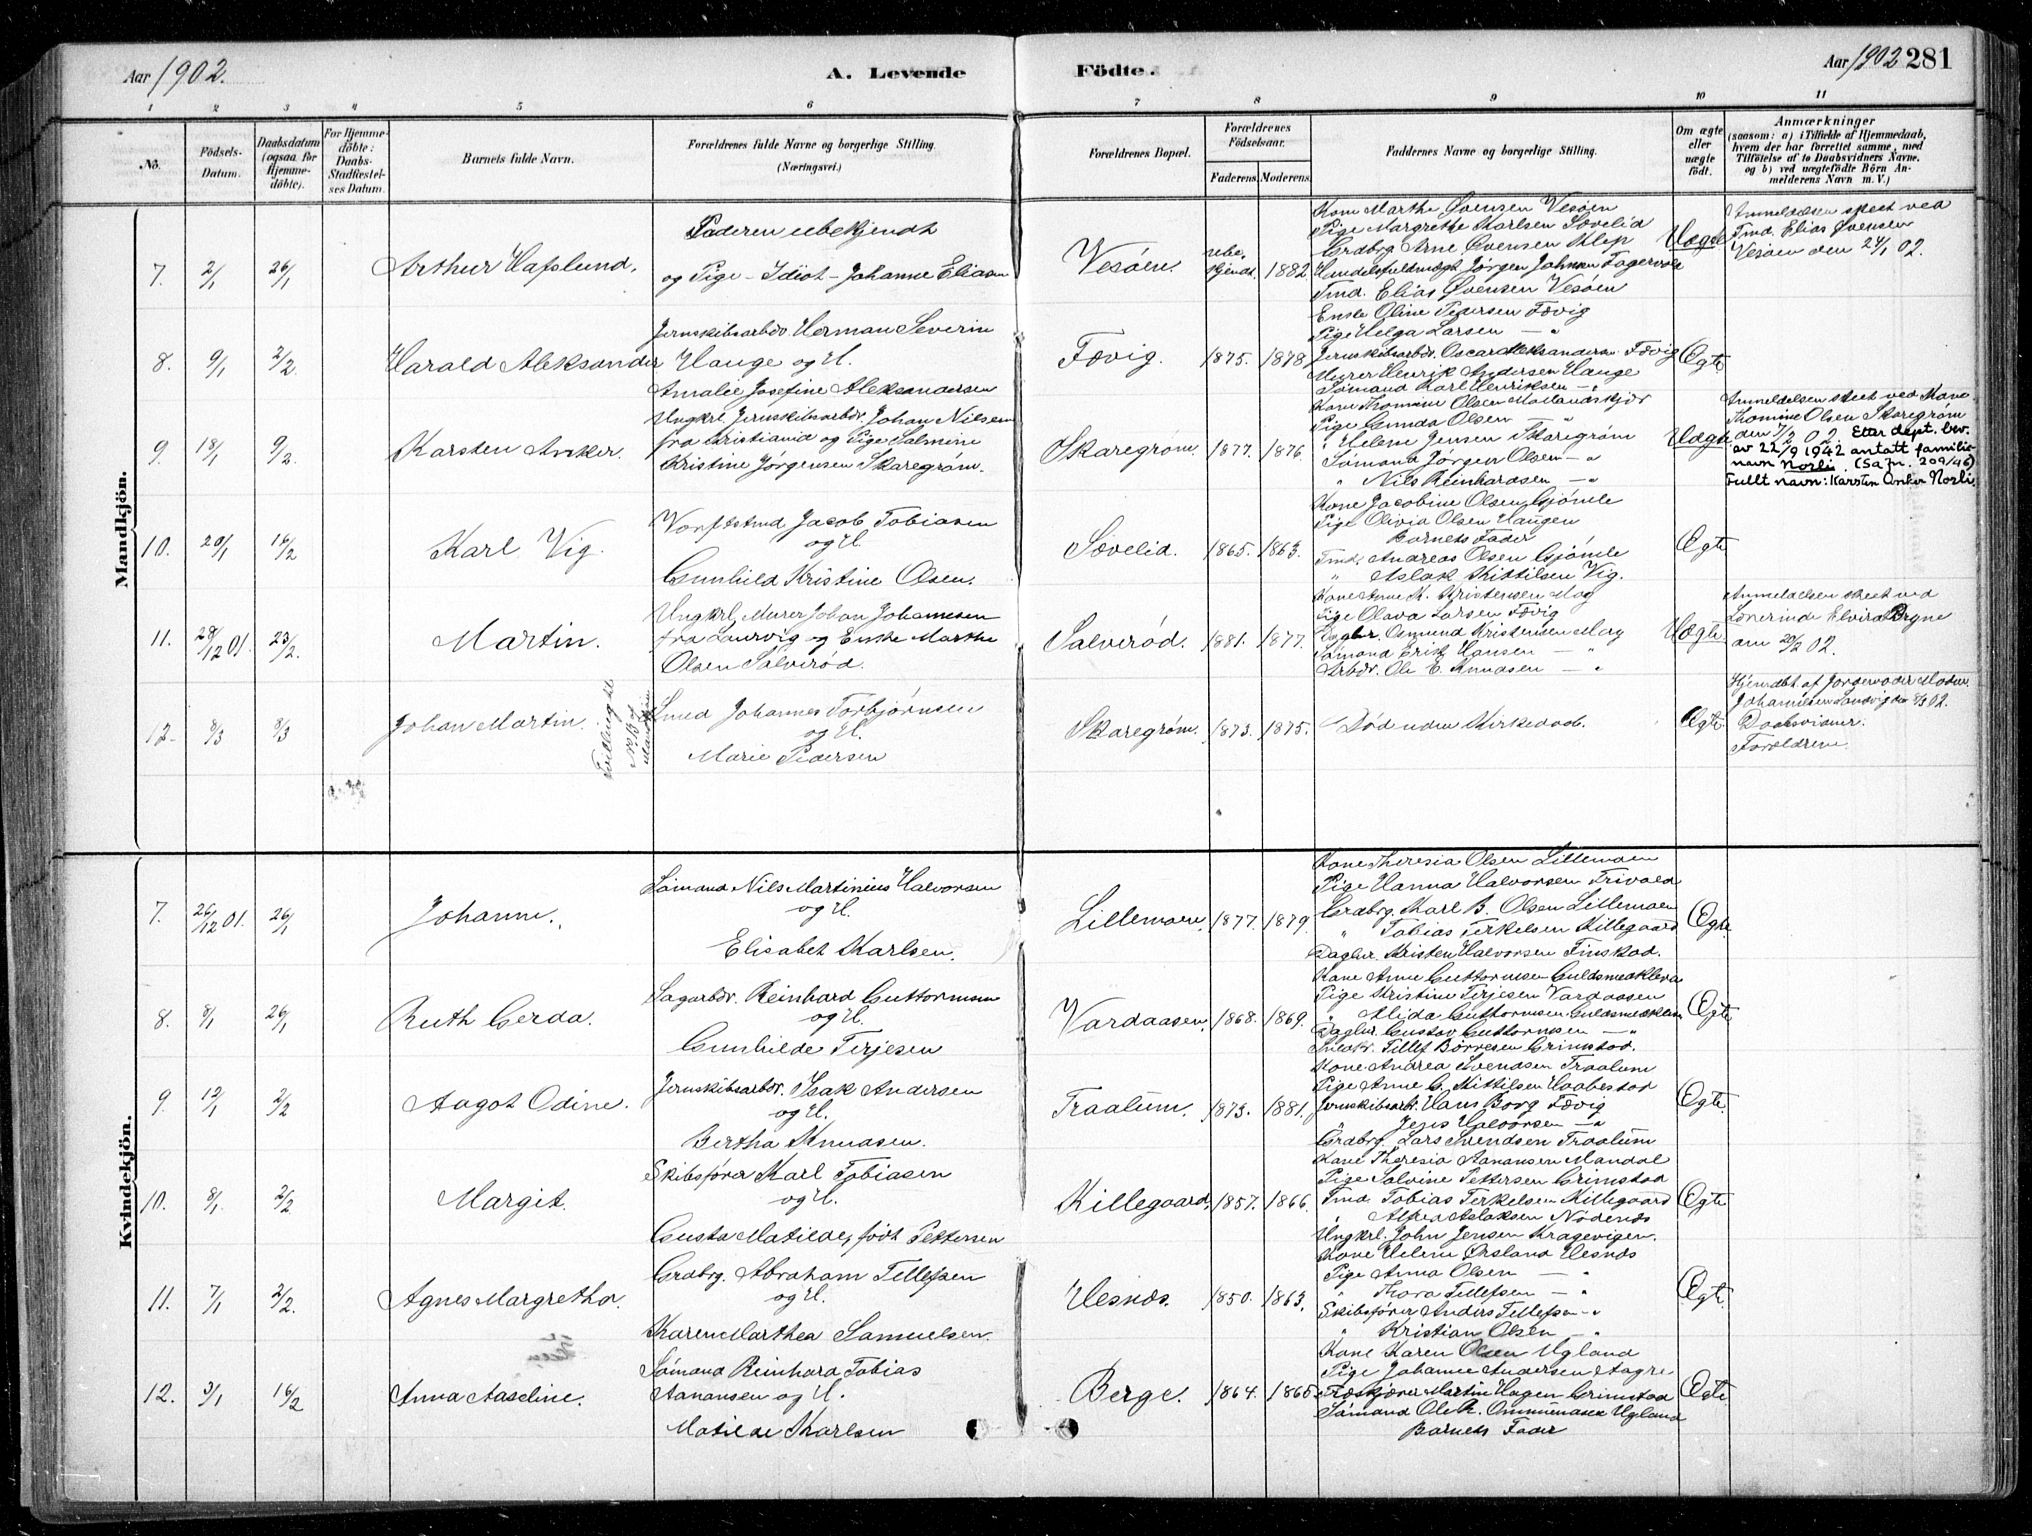 Aar 1902.
A. Levende
Födte.
Aar 1902 281
1 2 3 4 5 6 7 8 9 10 11
No.
Födsels-Datum.
Daabsdatum (ogsaa for Hjemme-döbte).
For Hjemme-döbte: Daabs-Stadfæstel-ses Datum.
Barnets fulde Navn.
Forældrenes fulde Navne og borgerlige Stilling.
(Næringsvei.)
Forældrenes Bopæl.
Forældrenes Födselsaar.
Faderens. Moderens.
Faddernes Navne og borgerlige Stilling.
Om ægte eller uægte födt.
Anmærkninger
(saasom: a) i Tilfælde af Hjemmedaab, hvem der har forrettet samme, med Tilföielse af to Daabsvidners Navne. og b) ved uægtefödte Börn An-melderens Navn m. V.)
Mandkjön.
7. 2/1 26/1 Arthur Hafslund.
Faderen ubekjendt
og Pige - Idiot - Johanne Eliasen
Vesöen. ube-kjendt. 1882.
Kone Marthe Øvensen Vesöen
Pige Margrethe Karlsen Sævelid
Grdbrg. Arne Evensen Klep
Handelsfuldmægt. Jørgen Johnsen Fagervold
Tmd. Elias Øvensen Vesöen
Uægte
Anmeldelsen skeet ved
Tmd. Elias Øvensen
Vesöen den 24/1 02.
8. 9/1 2/2 Harald Aleksander
Jernskibsarbdr. Herman Severin
Hauge og H.
Amalie Josefine Aleksandersen
Fævig. 1875. 1878.
Enke Oline Pedersen Fævig
Pige Helga Larsen — "
Jernskibsarbdr. Oscar Aleksandersen Fævig
Murer Henrik Andersen Hauge
Sømand Karl Henriksen — "
Ægte
9. 18/1 9/2 Karsten Anker.
Ungkrl. Jernskibsarbdr. Johan Nilsen
fra Kristiania og Pige Salmine
Kristine Jørgensen Skaregrøm.
Skaregrøm. 1877. 1876.
Kone Thomine Olsen Mollandskjær
Pige Gunda Olsen "
" Helene Jensen Skaregrøm
Sømand Jørgen Olsen — "
" Nils Reinhardsen — "
Uægte
Anmeldelsen skeet ved Kone
Thomine Olsen Skaregrøm
den 7/2 02. Etter dept. bev.
av 22/9 1942 antatt familie-
navn Norli. (Sa jn. 209/46)
Fullt navn: Karsten Anker Norli.
10. 20/1 16/2 Karl Vig.
Værftstmd. Jacob Tobiasen
og H.
Gunhild Kristine Olsen.
Sævelid. 1865. 1863.
Kone Jacobine Olsen Gjömle
Pige Olivia Olsen Haugen
Barnets Fader
Tmd. Andreas Olsen Gjömle
" Aslak Kittilsen Vig.
Ægte
11. 28/12 01. 23/2. Martin.
Ungkrl. Murer Johan Johannesen
fra Laurvig og Enke Marthe
Olsen Salveröd.
Salveröd. 1881. 1877.
Kone Anne K. Kristensen Moy
Pige Olava Larsen Fævig
Dagbr. Osmund Kristensen Moy
Sømand Erik Hansen — "
Arbdr. Ole E. Knudsen — "
Uægte
Anmeldelsen skeet ved
Lærerinde Elvira Bryne
den 20/2 02.
12. 8/3 8/3 Johan Martin.
Smed Johannes Torbjørnsen
og H.
Marie Pedersen
Skaregrøm. 1873. 1875.
Død uden Kirkedaab.
Ægte
Hjemdbt. af Jordemoder Madm.
Johannesen Sandvig den 8/3 02.
Daabsvidner:
Forældrene.
Kvindekjön.
7. 26/12 01. 26/1 Johanne.
Sømand Nils Martinius Halvorsen
og H.
Elisabet Karlsen.
Lillemoen. 1877. 1879.
Kone Theresia Olsen Lillemoen
Pige Hanna Halvorsen Frivold
Grdbrg. Karl B. Olsen Lillemoen
" Tobias Terkelsen Killegaard
Dagbr. Kristen Halvorsen Finstad.
Ægte
8. 8/1 26/1 Ruth Gerda.
Sagarbdr. Reinhard Guttormsen
og H.
Gunhilde Terjesen
Vardaasen. 1868. 1869.
Kone Anne Guttormsen Guldsmedkleva
Pige Kristine Terjesen Vardaasen
" Alida Guttormsen Guldsmedkleva
Dagbr. Gustav Guttormsen — "
Snedkr. Tellef Børresen Grimstad.
Ægte
9. 12/1 2/2 Aagot Odine.
Jernskibsarbdr. Isak Andersen
og H.
Bertha Knudsen.
Traalum. 1873. 1881.
Kone Andrea Svendsen Traalum
Pige Anne G. Kittilsen Haabestad
Jernskibsarb. Hans Borg Fævig
" Jens Halvorsen — "
Grdbrg. Lars Svendsen Traalum
Ægte
10. 8/1 2/2 Margit.
Skibsfører Karl Tobiasen
og H.
Gusta Matilde, født Pettersen
Killegaard. 1857. 1866.
Kone Theresia Aanansen Mandal
Pige Salvine Pettersen Grimstad
Tmd. Tobias Terkelsen Killegaard
Alfred Aslaksen Nødenes
Ungkrl. John Jensen Kragevigen.
Ægte
11. 7/1 2/2. Agnes Margretha.
Grdbrg. Abraham Tellefsen
og H.
Karen Marthea Samuelsen.
Hesnæs. 1850. 1863.
Kone Helene Ørsland Hesnæs
Pige Anna Olsen — "
" Thora Tellefsen — "
Skibsfører Anders Tellefsen — "
" Kristian Olsen — "
Ægte
12. 3/1 16/2 Anna Aaseline.
Sømand Reinhard Tobias
Aanansen og H.
Matilde Karlsen
Berge. 1864. 1865.
Kone Karen Olsen Ugland
Pige Johanne Andersen Aagre
Træskjærer Martin Hagen Grimstad
Sømand Ole R. Ommundsen Ugland
Barnets Fader
Ægte